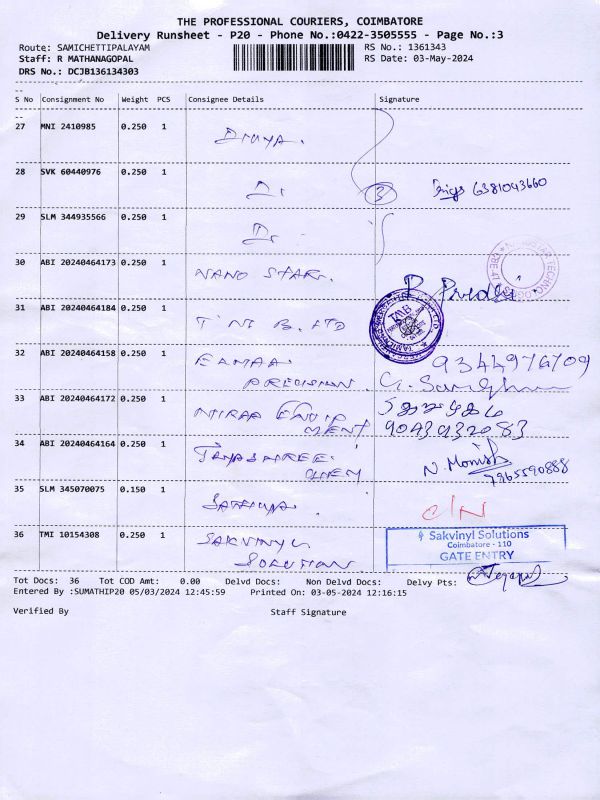 THE PROFESSIONAL COURIERS, COIMBATORE
Delivery Runsheet - P20 - Phone No.:0422-3505555 - Page No.:3
Route: SAMICHETTIPALAYAM RS No.: 1361343
Staff: R MATHANAGOPAL RS Date: 03-May-2024
DRS No.: DCJB136134303
S No Consignment No Weight PCS Consignee Details Signature
27 MNI 2410985 0.250 1 Divya.
28 SVK 60440976 0.250 1 Dr 3 6381043660
29 SLM 344935566 0.250 1 Dr
30 ABI 20240464173 0.250 1 NANO STAR.
31 ABI 20240464184 0.250 1 B. LTD
TMB
32 ABI 20240464158 0.250 1 9344976709
PRECISION. G.
33 ABI 20240464172 0.250 1 EQUIP
MENT 9043932083
34 ABI 20240464164 0.250 1 JAYASHREE. N. Monish
CHEM 7965590888
35 SLM 345070075 0.150 1 SATHIYA. C/N
36 TMI 10154308 0.250 1 SAKVINYL
SOLUTION
Sakvinyl Solutions
Coimbatore - 110
GATE ENTRY
Tot Docs: 36 Tot COD Amt: 0.00 Delvd Docs: Non Delvd Docs: Delvy Pts:
Entered By :SUMATHIP20 05/03/2024 12:45:59 Printed On: 03-05-2024 12:16:15
Verified By Staff Signature